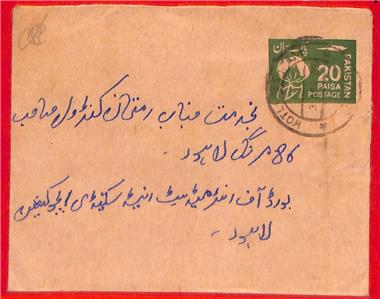 پاکستان
PAKISTAN
20
PAISA
POSTAGE
بخدمت جناب کنٹرولر صاحب
86 مزنگ لاہور ۔
بورڈ آف انٹرمیڈیٹ اینڈ سکنڈری ایجوکیشن
لاہور ۔